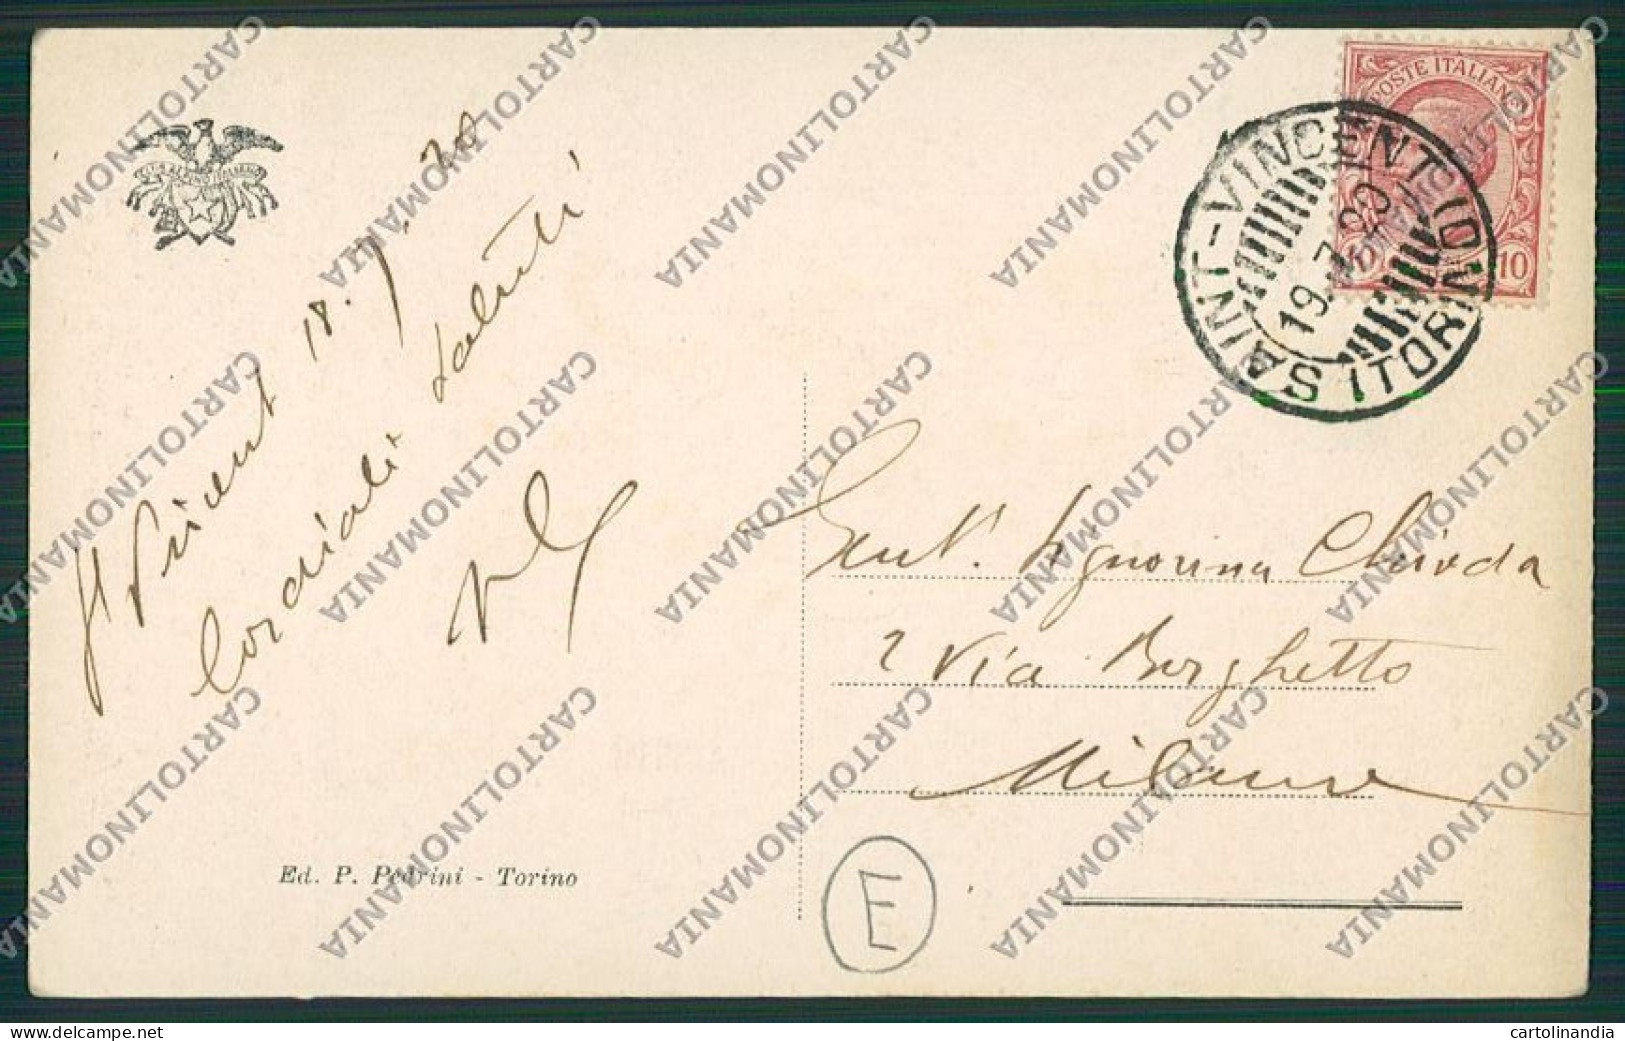 St Vincent 18.7.20
Cordiali saluti
POSTE ITALIANE
10 10
SAINT-VINCENT (TORINO)
19.7.20
Gent. Signorina Chiesda
2 Via Borghetto
Milano
Ed. P. Pedrini - Torino
E
CARTOLINOMANIA
cartolinandia